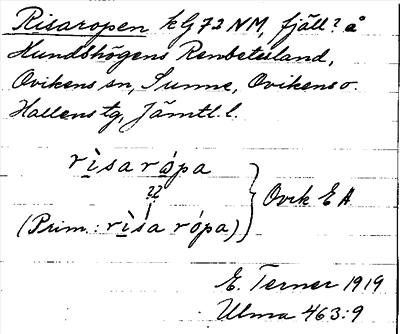 Risaropen kG72 NM, fjäll? å
Hundshögens Renbetesland,
Ovikens sn, Sunne, Ovikens o.
Hallens tg, Jämtl. l.
rìsarópa
(Prim.: rìsa rópa)} Ovik E A
E. Terner 1919
Ulma 463:9